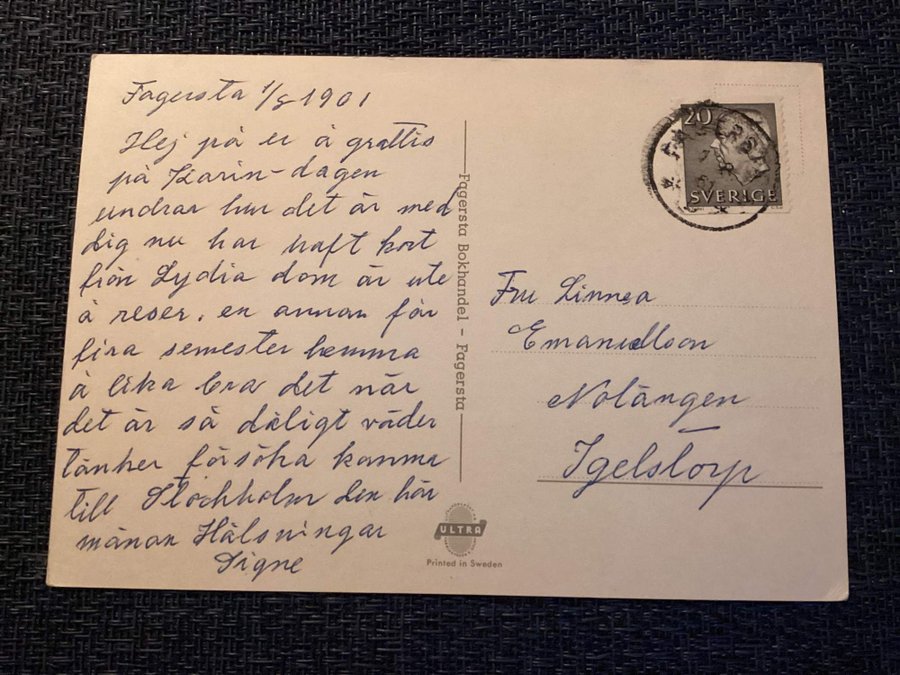 Fagersta 1/8 1901
Hej på er å grattis
på Karin-dagen
undrar hur det är med
dig nu har haft kort
från Lydia dom är ute
å reser, en annan får
fira semester hemma
å lika bra det när
det är så dåligt väder
tänker försöka komma
till Stockholm den här
månan Hälsningar
Signe
Fagersta Bokhandel - Fagersta
ULTRA
Printed in Sweden
20
SVERIGE
Fru Linnea
Emanuellson
Nolängen
Igelstorp